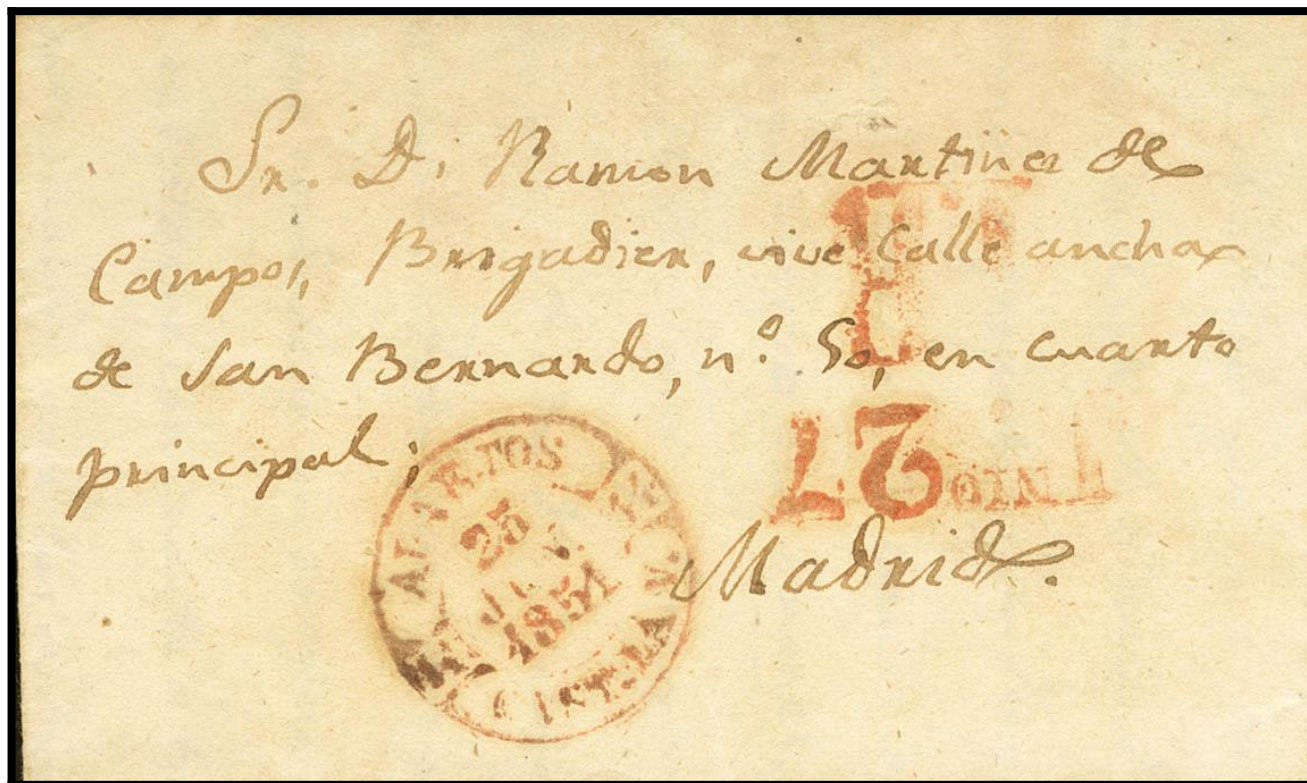 Sr. D. Ramon Martinez de
Campos, Brigadier, vive Calle ancha
de San Bernardo, nº. 50, en cuarto
principal;
Madrid.
25
1851